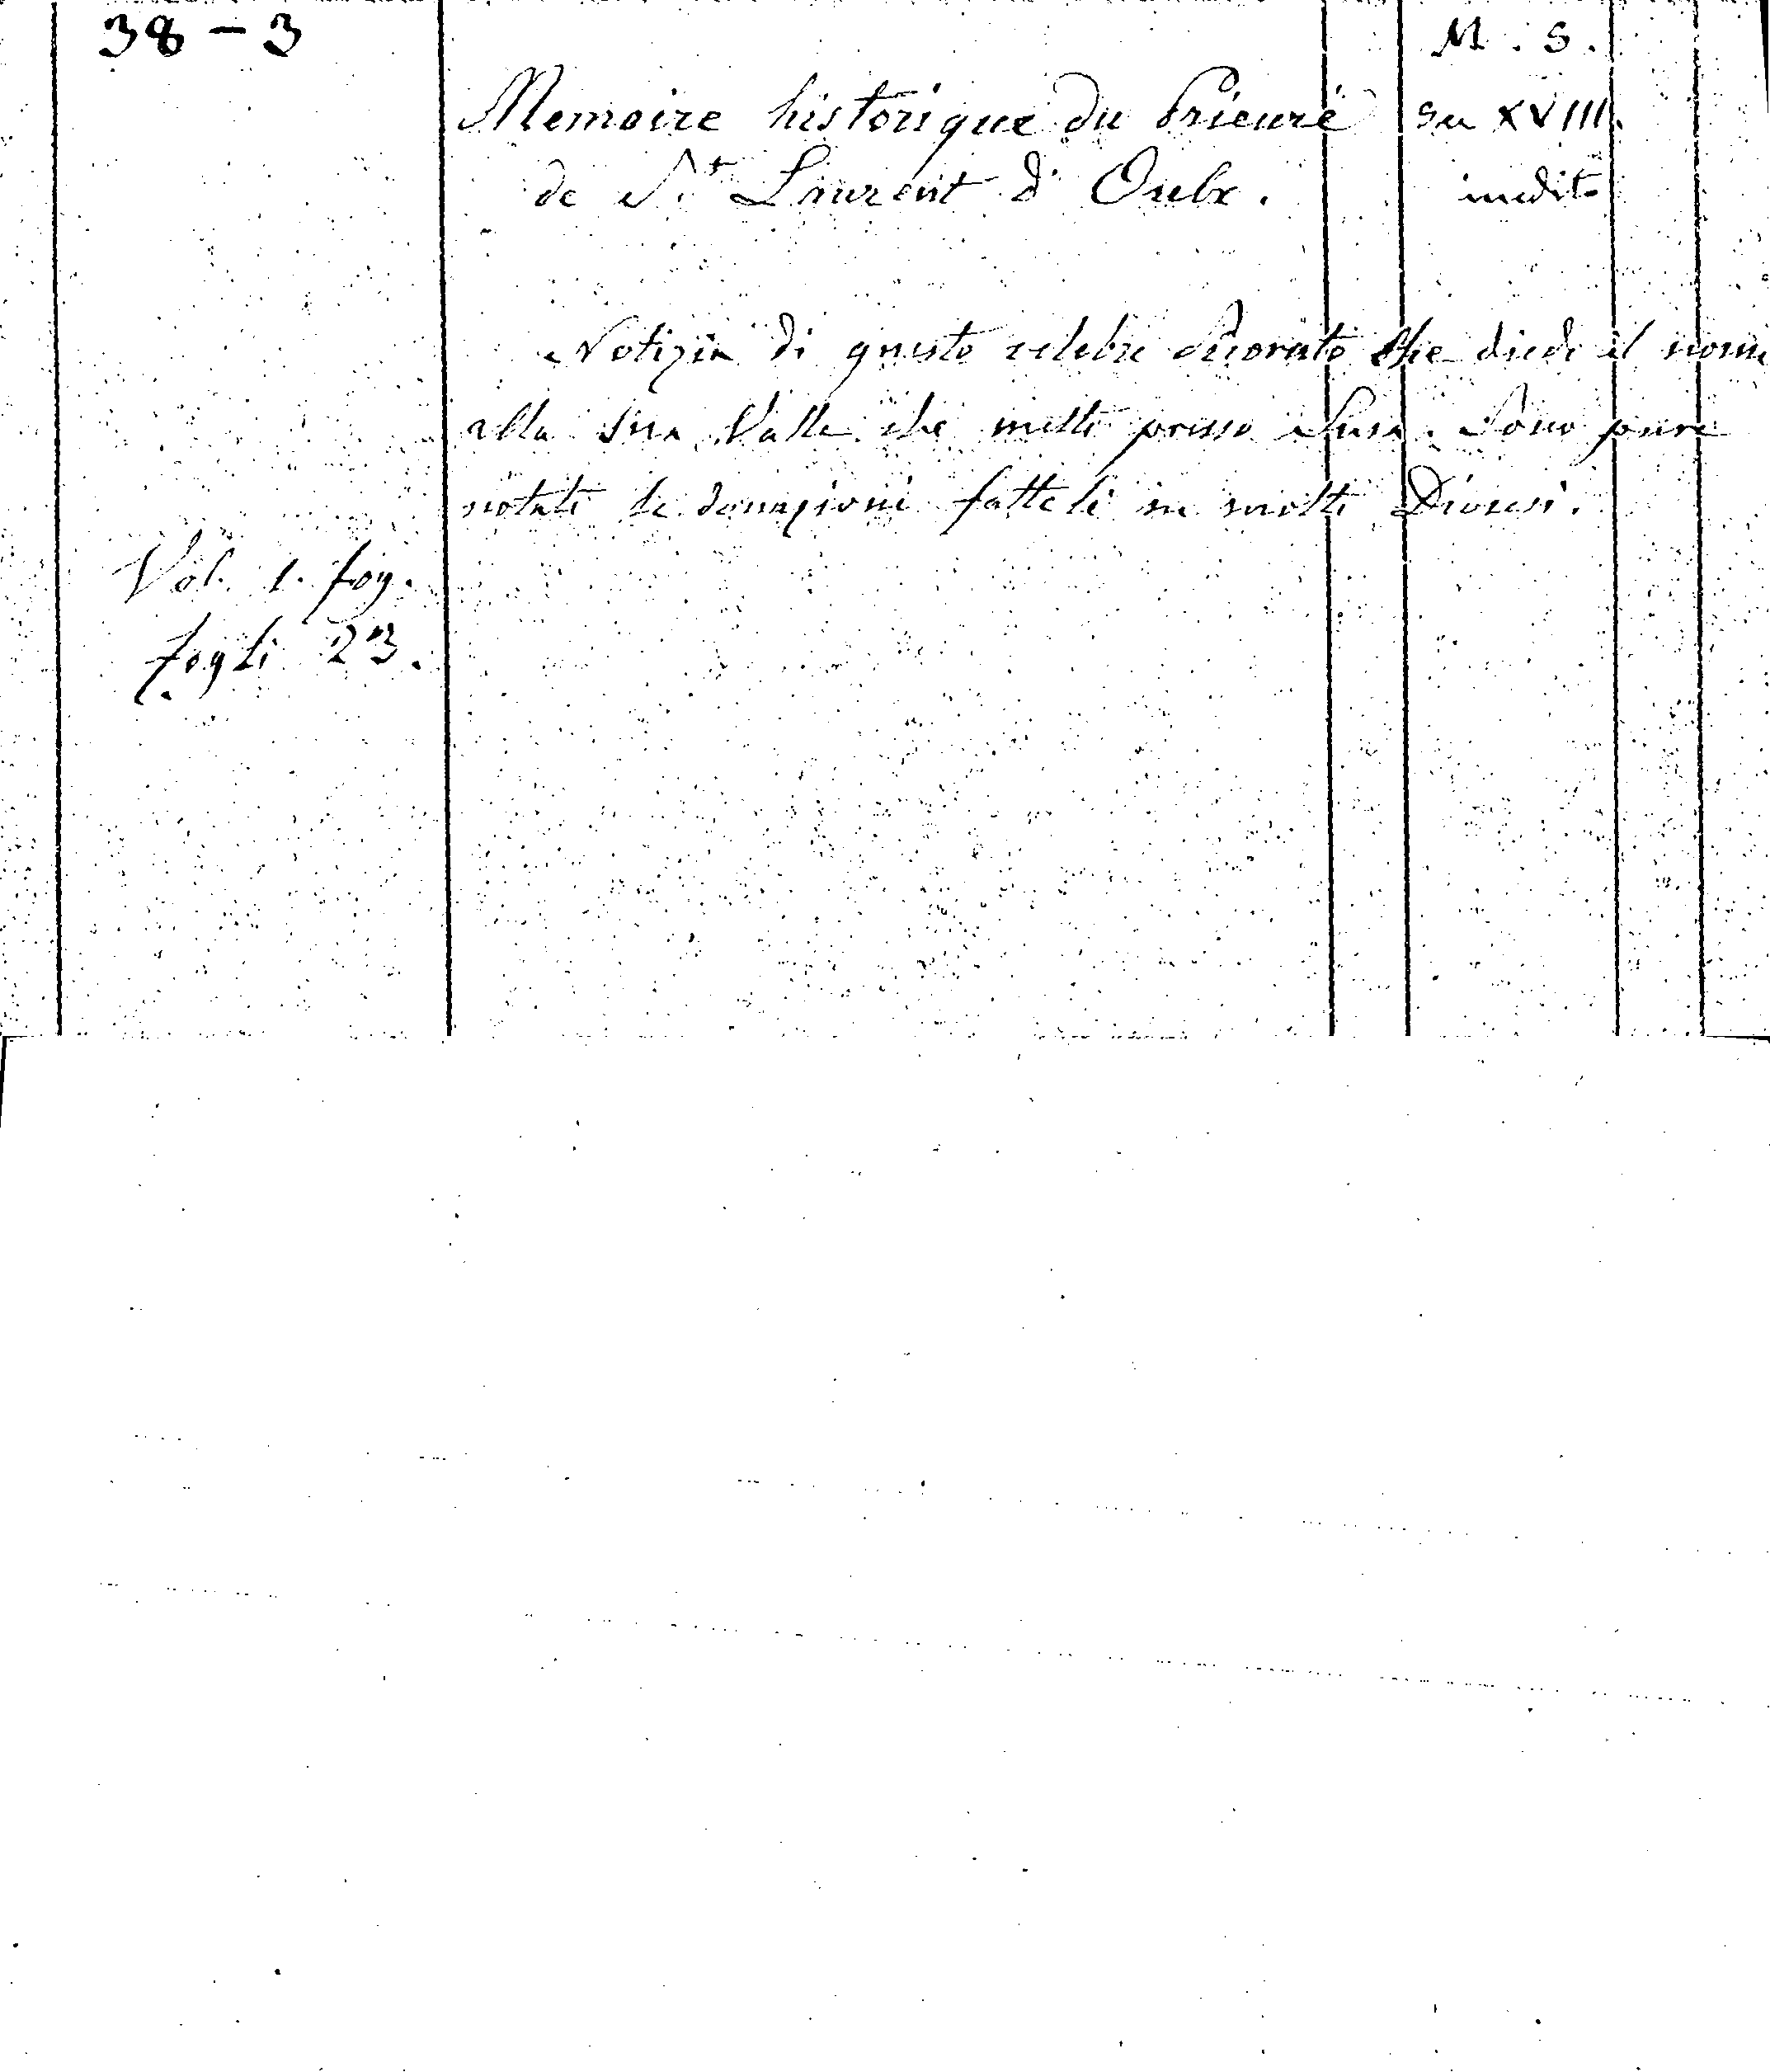 38 - 3
M. S.
Memoire historique du Prieuré
de St. Laurent d'Oulx.
su XVIII.
inedito
Notizia di questo celebre Priorato che diede il nome
alla sua Valle che mette presso Susa. Sono pure
notate le donazioni fatteli in molti Diocesi.
Vol. 1. fog.
fogli 23.